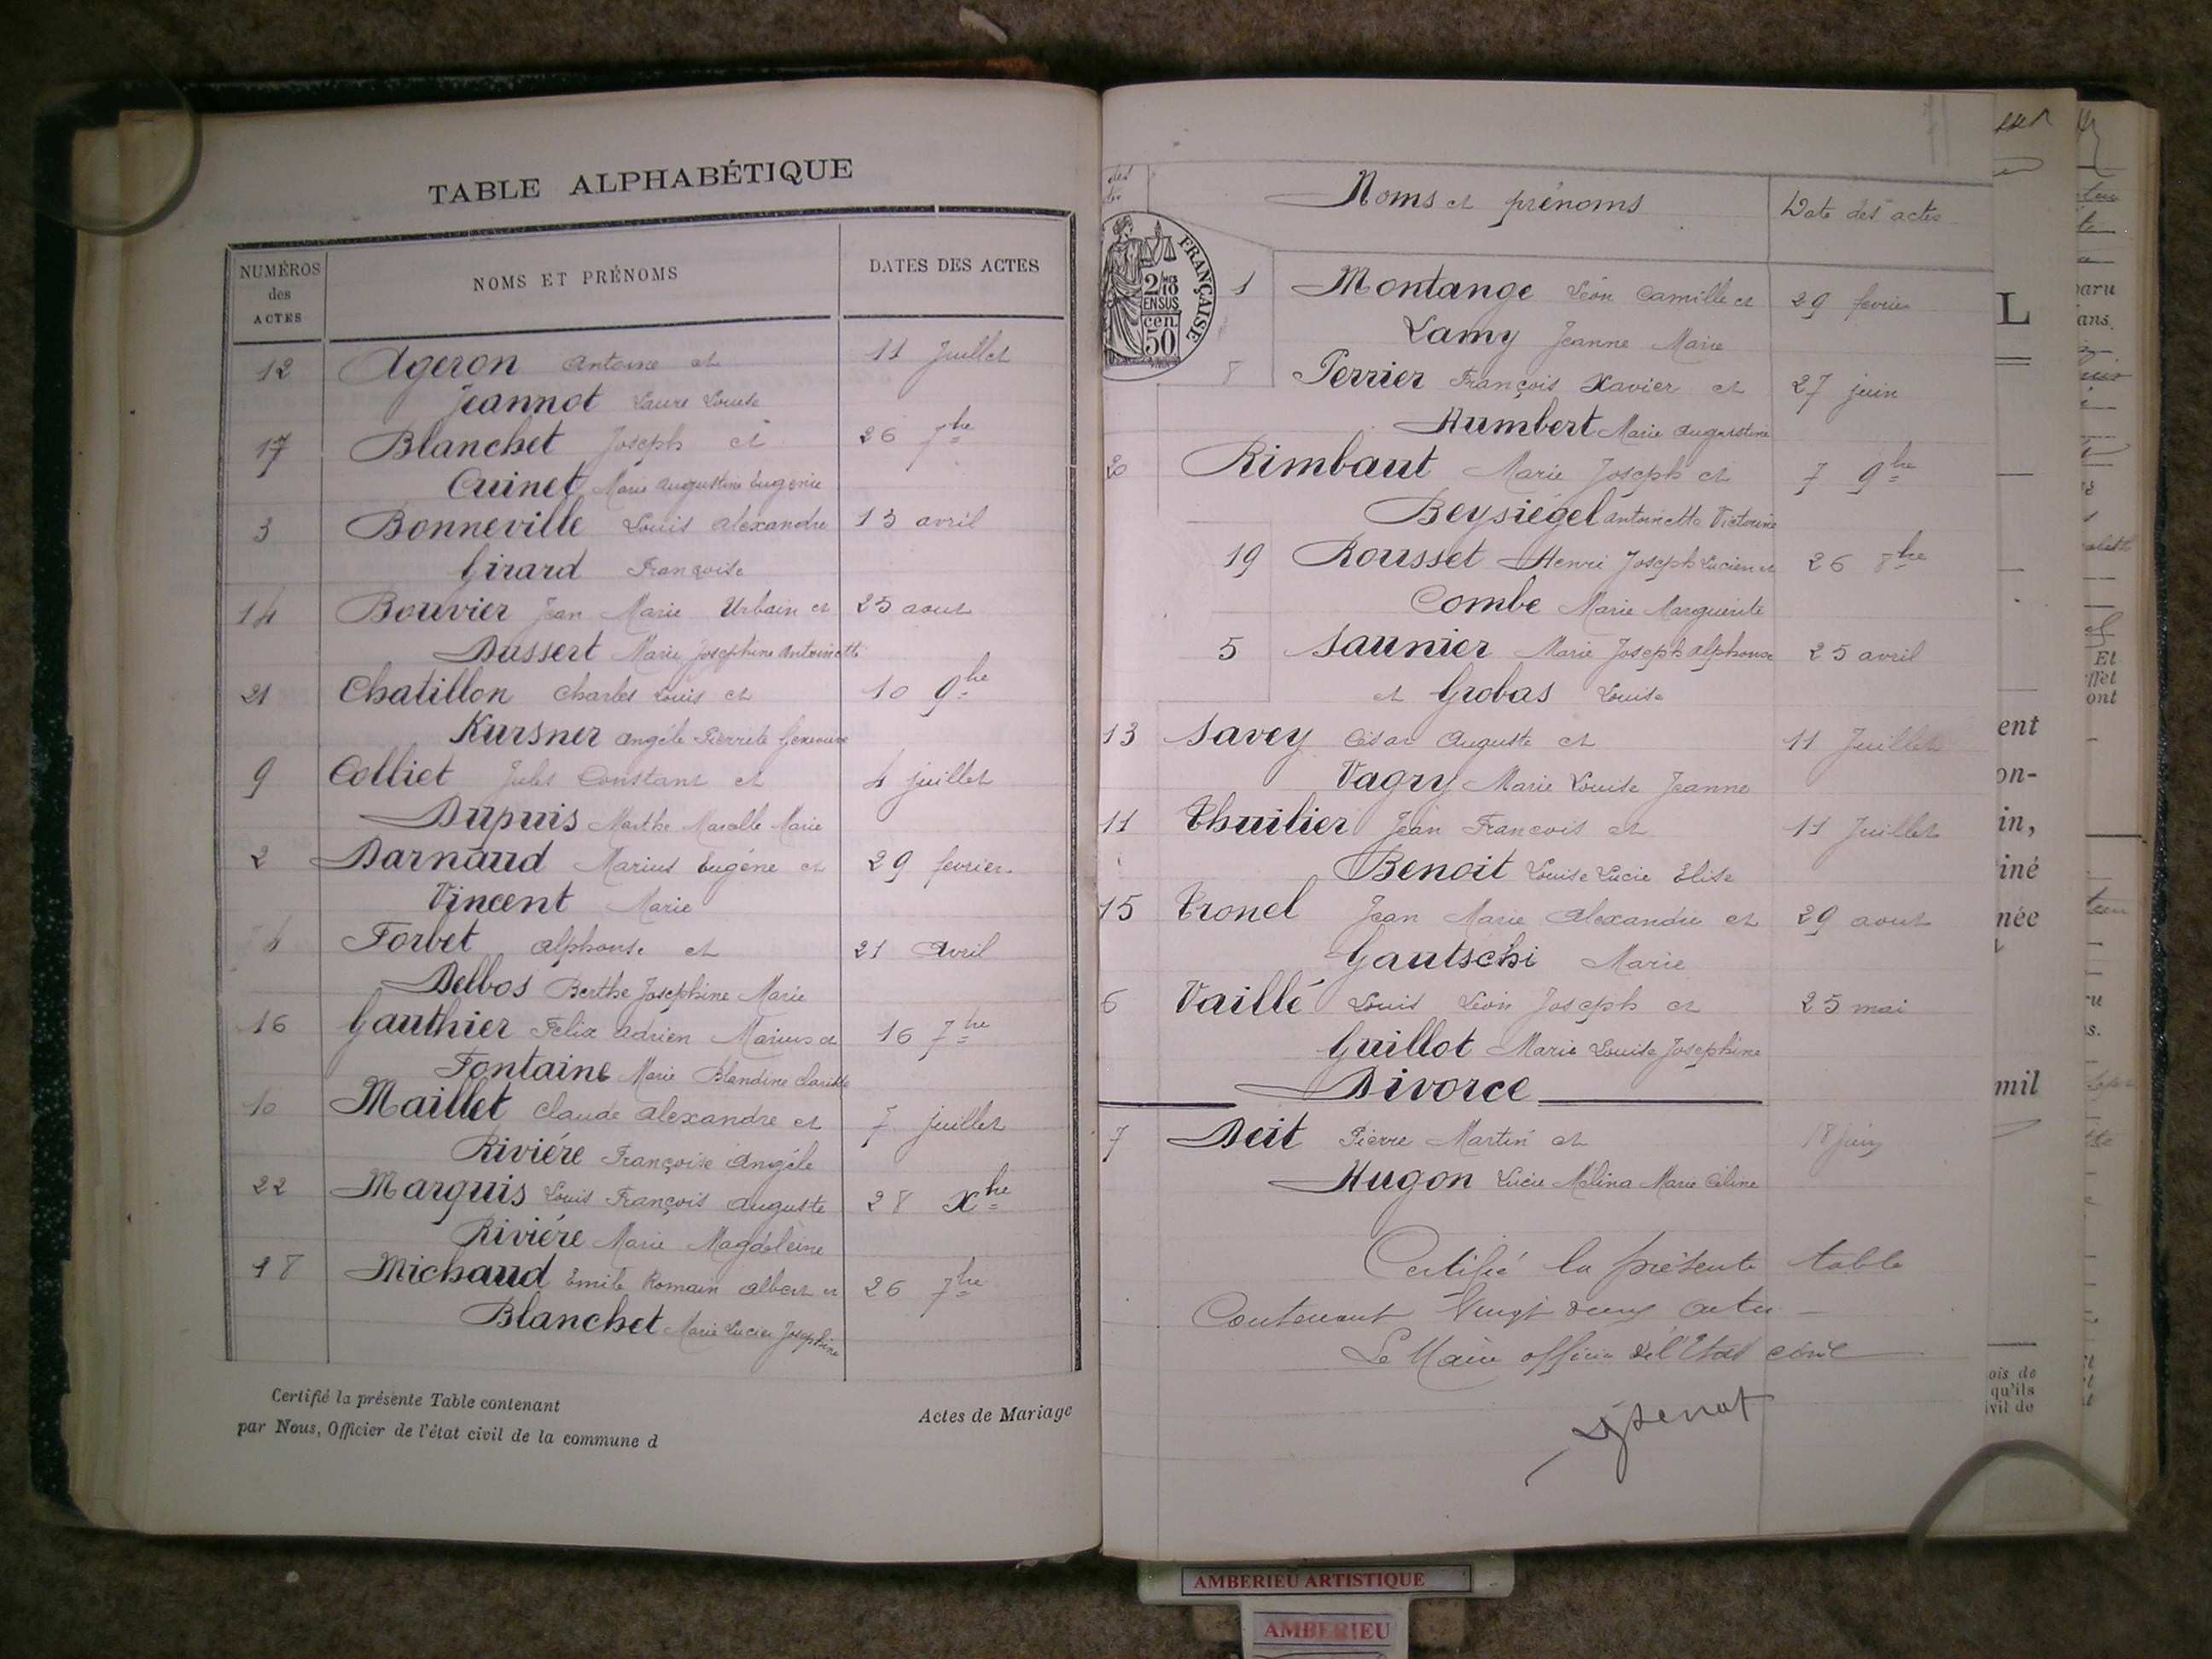 TABLE ALPHABÉTIQUE
NUMÉROS des ACTES NOMS ET PRÉNOMS DATES DES ACTES
12 Ageron Antoine et 11 Juillet
Jeannot Laure Louise
17 Blanchet Joseph et 26 7bre
Cuinet Marie Augustine Eugénie
3 Bonneville Louis Alexandre 13 avril
Girard Françoise
14 Bouvier Jean Marie Urbain et 25 aout
Dussert Marie Joséphine Antoinette
21 Chatillon Charles Louis et 10 9bre
Kursner Angèle Pierrete
9 Colliet Jules Constant et 4 juillet
Dupuis Marthe Marie
2 Darnaud Marius Eugéne et 29 fevrier
Vincent Marie
4 Forbet Alphonse et 21 Avril
Delbos Berthe Joséphine Marie
16 Gauthier Felix Adrien Marius et 16 7bre
Fontaine Marie Blandine Clarisse
10 Maillet Claude Alexandre et 7 juillet
Riviére Françoise Angéle
22 Marquis Louis François Auguste 28 Xbre
Riviére Marie Magdeleine
18 Michaud Emile Romain Albert et 26 7bre
Blanchet Marie Lucie Joséphine
Certifié la présente Table contenant Actes de Mariage
par Nous, Officier de l'état civil de la commune d
Noms et prénoms Date des actes
FRANÇAISE
2/10
EN SUS
cen.
50
1 Montange Léon Camille et 29 fevrier
Lamy Jeanne Marie
8 Perrier François Xavier et 27 juin
Humbert Marie Augustine
20 Rimbaut Marie Joseph et 7 9bre
Beysiégel Antoinette Victorine
19 Rousset Henri Joseph Lucien et 26 8bre
Combe Marie Marguerite
5 Saunier Marie Joseph Alphonse 25 avril
et Grobas Louise
13 Savey César Auguste et 11 Juillet
Vagry Marie Louise Jeanne
11 Thuilier Jean Francois et 11 Juillet
Benoit Louise Lucie Elise
15 Tronel Jean Marie Alexandre et 29 aout
Gautschi Marie
6 Vaillé Louis Léon Joseph et 25 mai
Guillot Marie Louise Joséphine
Divorce
7 Deit Pierre Martin et 18 juin
Hugon Lucie Mélina Marie Céline
Certifié la présente table
Contenant Vingt deux actes
Le Maire officier de l'Etat civil
L
ent
on-
in,
iné
née
mil
ois de
qu'ils
ivil de
paru
ans.
Et
ffet
ont
AMBERIEU ARTISTIQUE
AMBERIEU